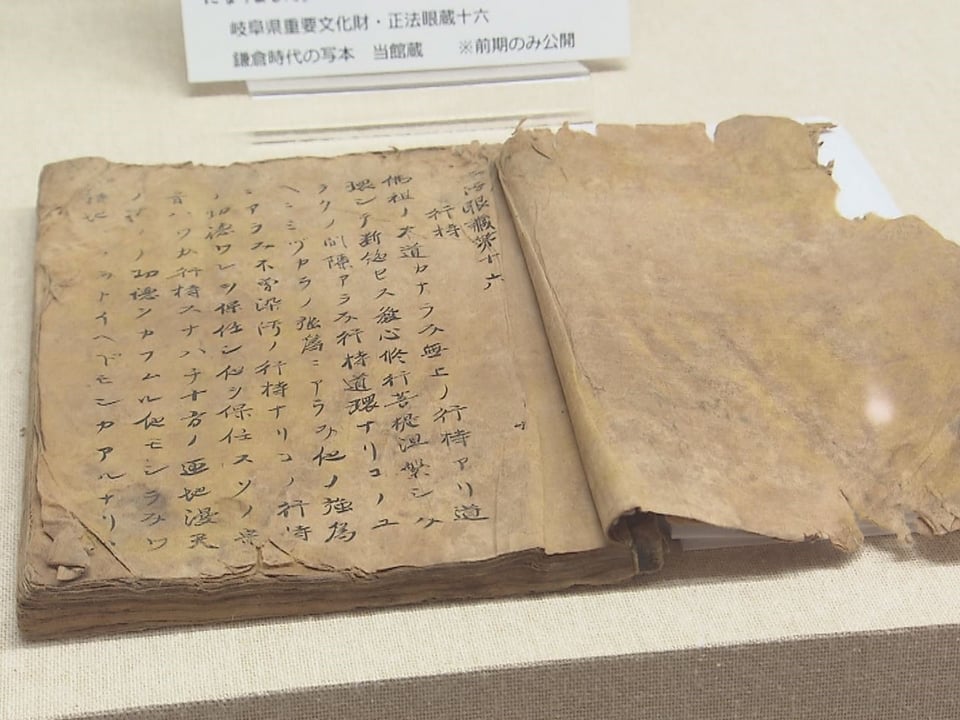 岐阜県重要文化財・正法眼蔵十六
鎌倉時代の写本　当館蔵　　※前期のみ公開
法眼蔵第十六
行持
佛祖ノ大道カナラス無上ノ行持アリ道
環シテ断絶セス發心修行菩提涅槃シハ
ラクノ間隙アラス行持道環ナリコノユ
ヘニミツカラノ強為ニアラス他ノ強為
ニアラス不曽染汚ノ行持ナリコノ行持
ノ功徳ワレヲ保任シ他ヲ保任スソノ宗
旨ハワカ行持スナハチ十方ノ匝地漫天
ノ功徳ヲカフムル他モシラスワ
ラストイヘドモシカアルナリ